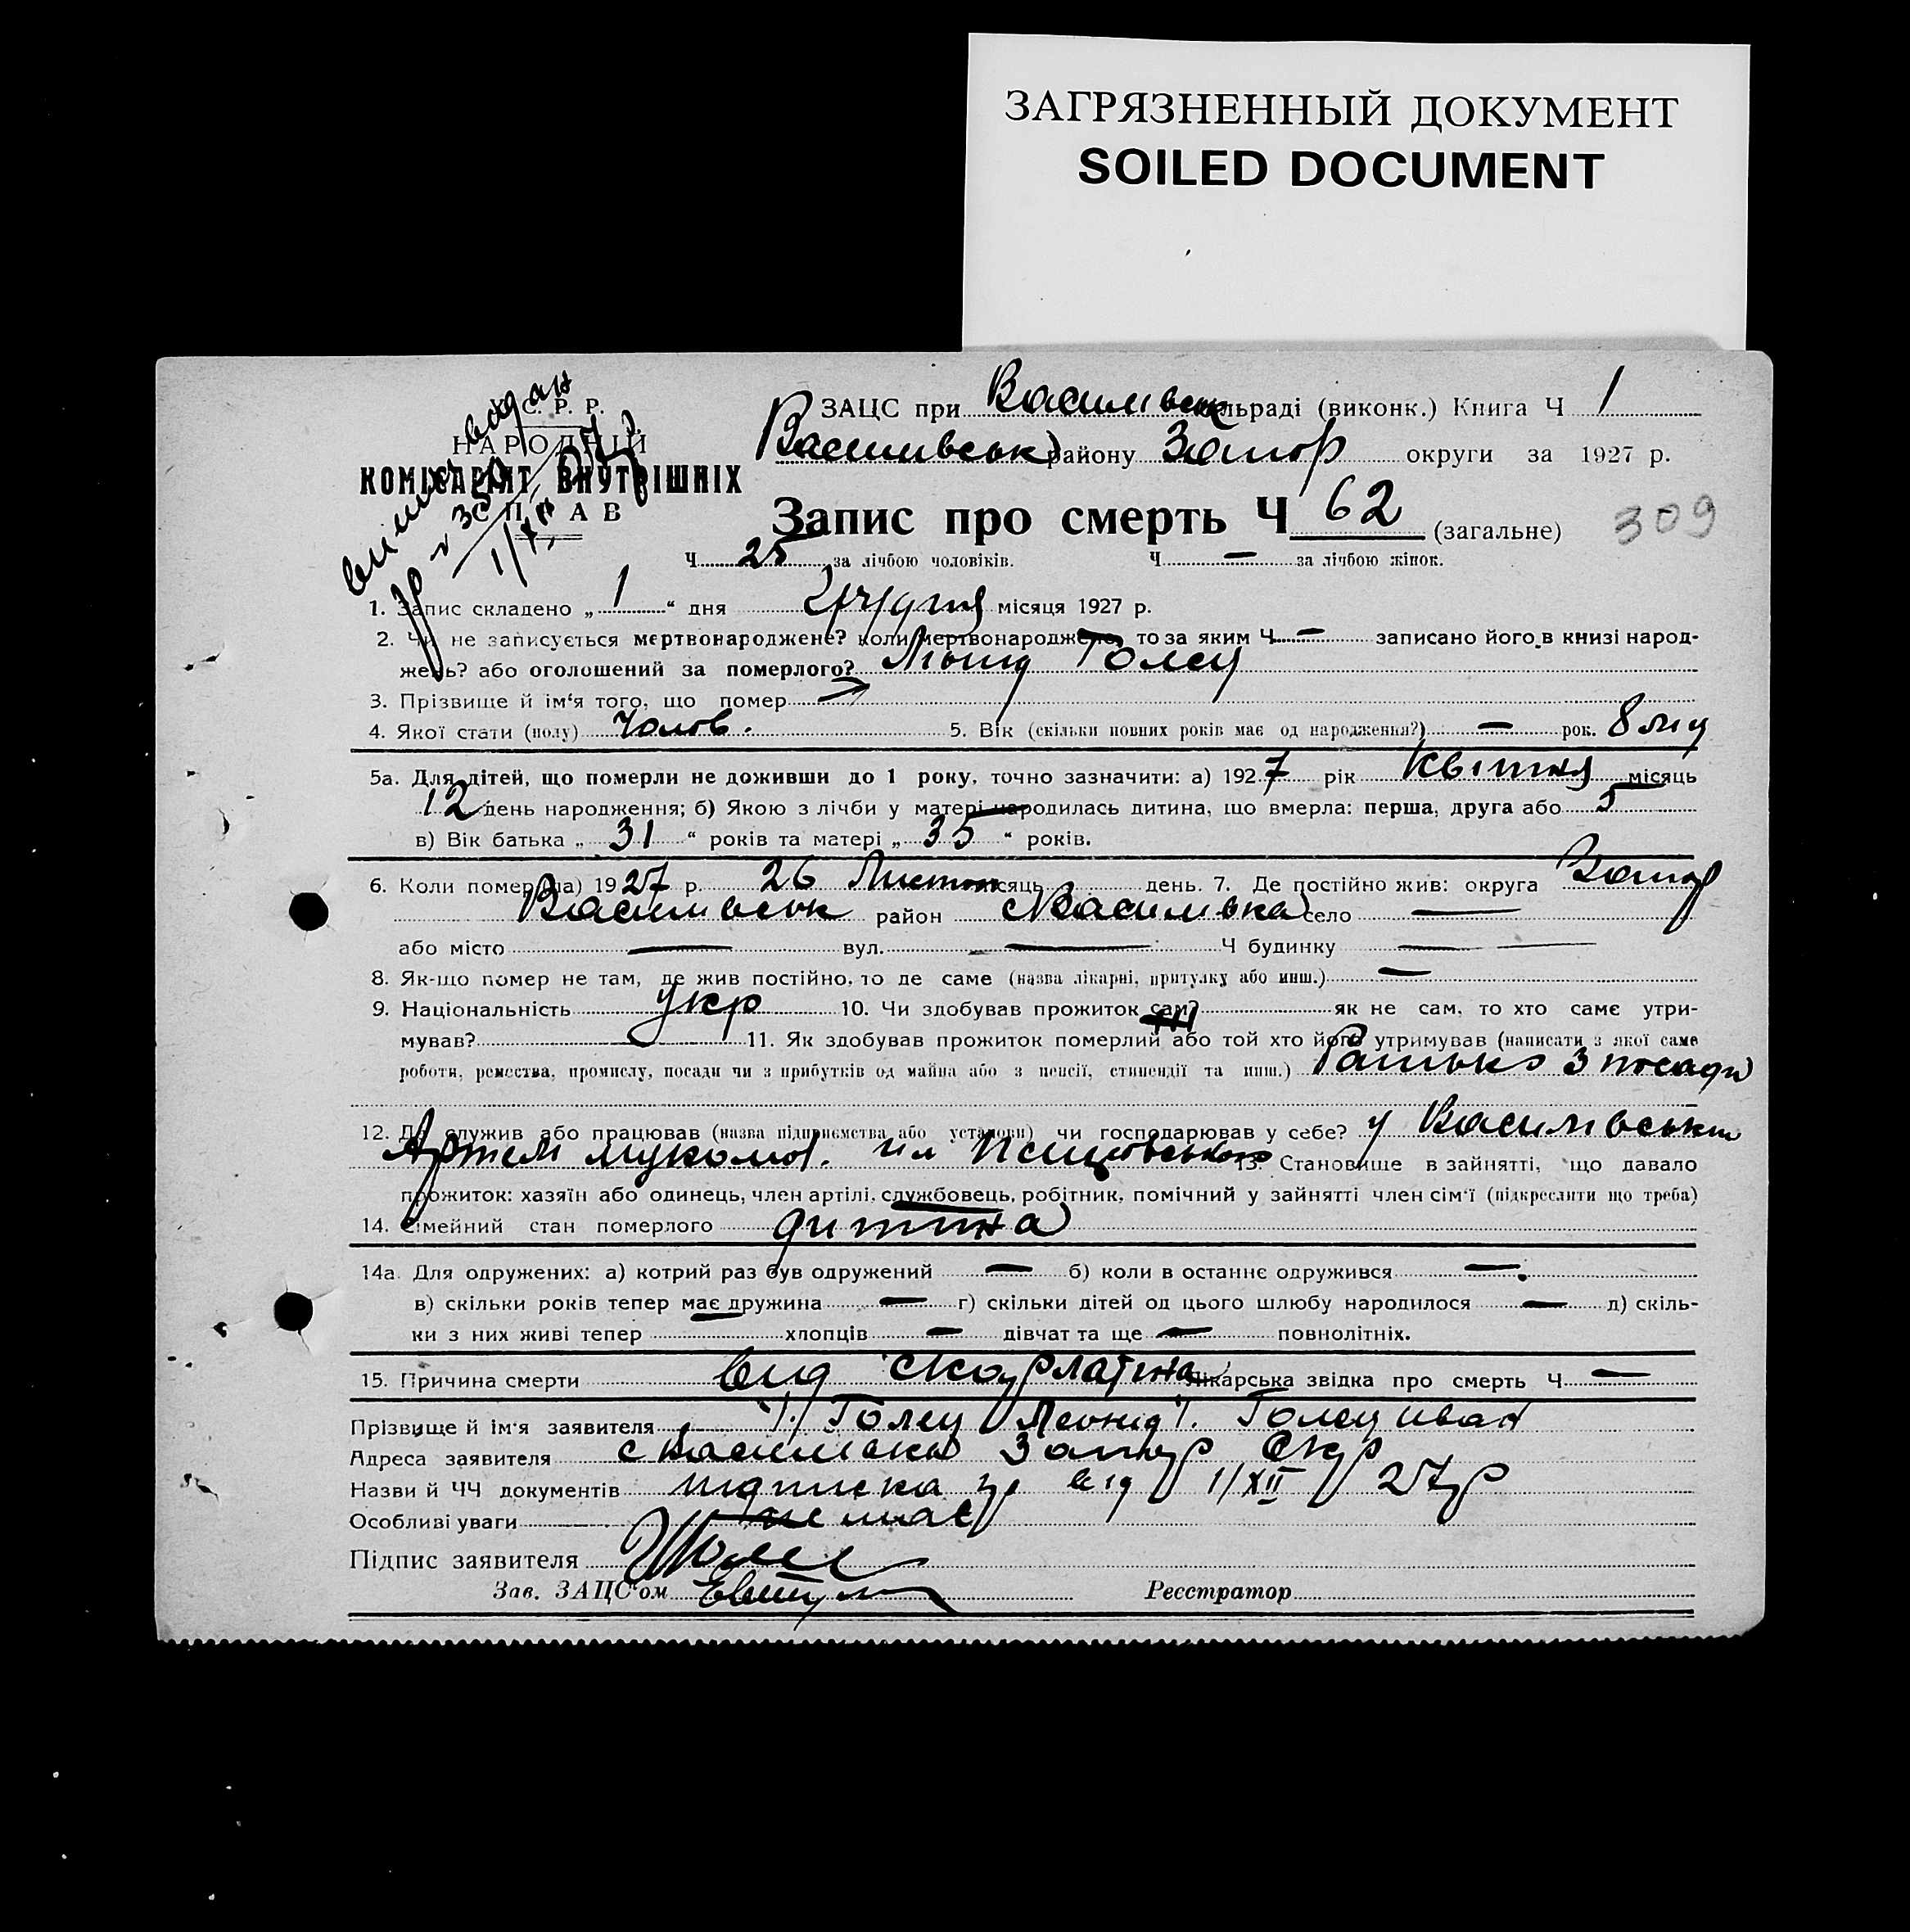 ЗАГРЯЗНЕННЫЙ ДОКУМЕНТ
SOILED DOCUMENT
С. Р. Р.
НАРОДНІЙ
КОМІСАРІЯТ ВНУТРІШНІХ
СПРАВ
ЗАЦС при Василівськ сільраді (виконк.) Книга Ч 1
Василівськ району Запор округи за 1927 р.
Запис про смерть Ч 62 (загальне) 309
Ч 25 за лічбою чоловіків. Ч — за лічбою жінок.
1. Запис складено „ 1 “ дня Грудня місяця 1927 р.
2. Чи не записується мертвонароджене? коли мертвонароджене, то за яким Ч — записано його в книзі народ-
жень? або оголошений за померлого? Голец
3. Прізвище й ім‘я того, що помер
4. Якої статі (полу) Чолов. 5. Вік (скільки повних років має од народження?) — рок. 8 міц
5а. Для дітей, що померли не доживши до 1 року, точно зазначити: а) 1927 рік Квітня місяць
12 день народження; б) Якою з лічби у матері народилась дитина, що вмерла: перша, друга або 5
в) Вік батька „ 31 “ років та матері „ 35 “ років.
6. Коли помер(ла) 1927 р. 26 Листоп місяць день. 7. Де постійно жив: округа Запор
Василівськ район с Василівка село —
або місто — вул. — Ч будинку —
8. Як-що помер не там, де жив постійно, то де саме (назва лікарні, притулку або инш.) —
9. Національність укр 10. Чи здобував прожиток сам? як не сам, то хто саме утри-
мував? 11. Як здобував прожиток померлий або той хто його утримував (написати з якої саме
роботи, ремества, промислу, посади чи з прибутків од майна або з пенсії, стипендії та инш.) Батько з посади
12. Де служив або працював (назва підприємства або установи) чи господарював у себе? у Василівськ
Артелі мукомол. 13. Становище в зайнятті, що давало
прожиток: хазяїн або одинець, член артілі, службовець, робітник, помічний у зайнятті член сім‘ї (підкреслити що треба)
14. Сімейний стан померлого дитина
14а. Для одружених: а) котрий раз був одружений — б) коли в останнє одружився —
в) скільки років тепер має дружина — г) скільки дітей од цього шлюбу народилося — д) скіль-
ки з них живі тепер хлопців — дівчат та ще — повнолітніх.
15. Причина смерти від скарлатина Лікарська звідка про смерть Ч —
Прізвище й ім‘я заявителя Голец Леонід Голец Иван
Адреса заявителя с Василівка Запор Окр
Назви й ЧЧ документів підписка від 1/XII 27 р
Особливі уваги немає
Підпис заявителя Голец
Зав. ЗАЦС‘ом Реєстратор